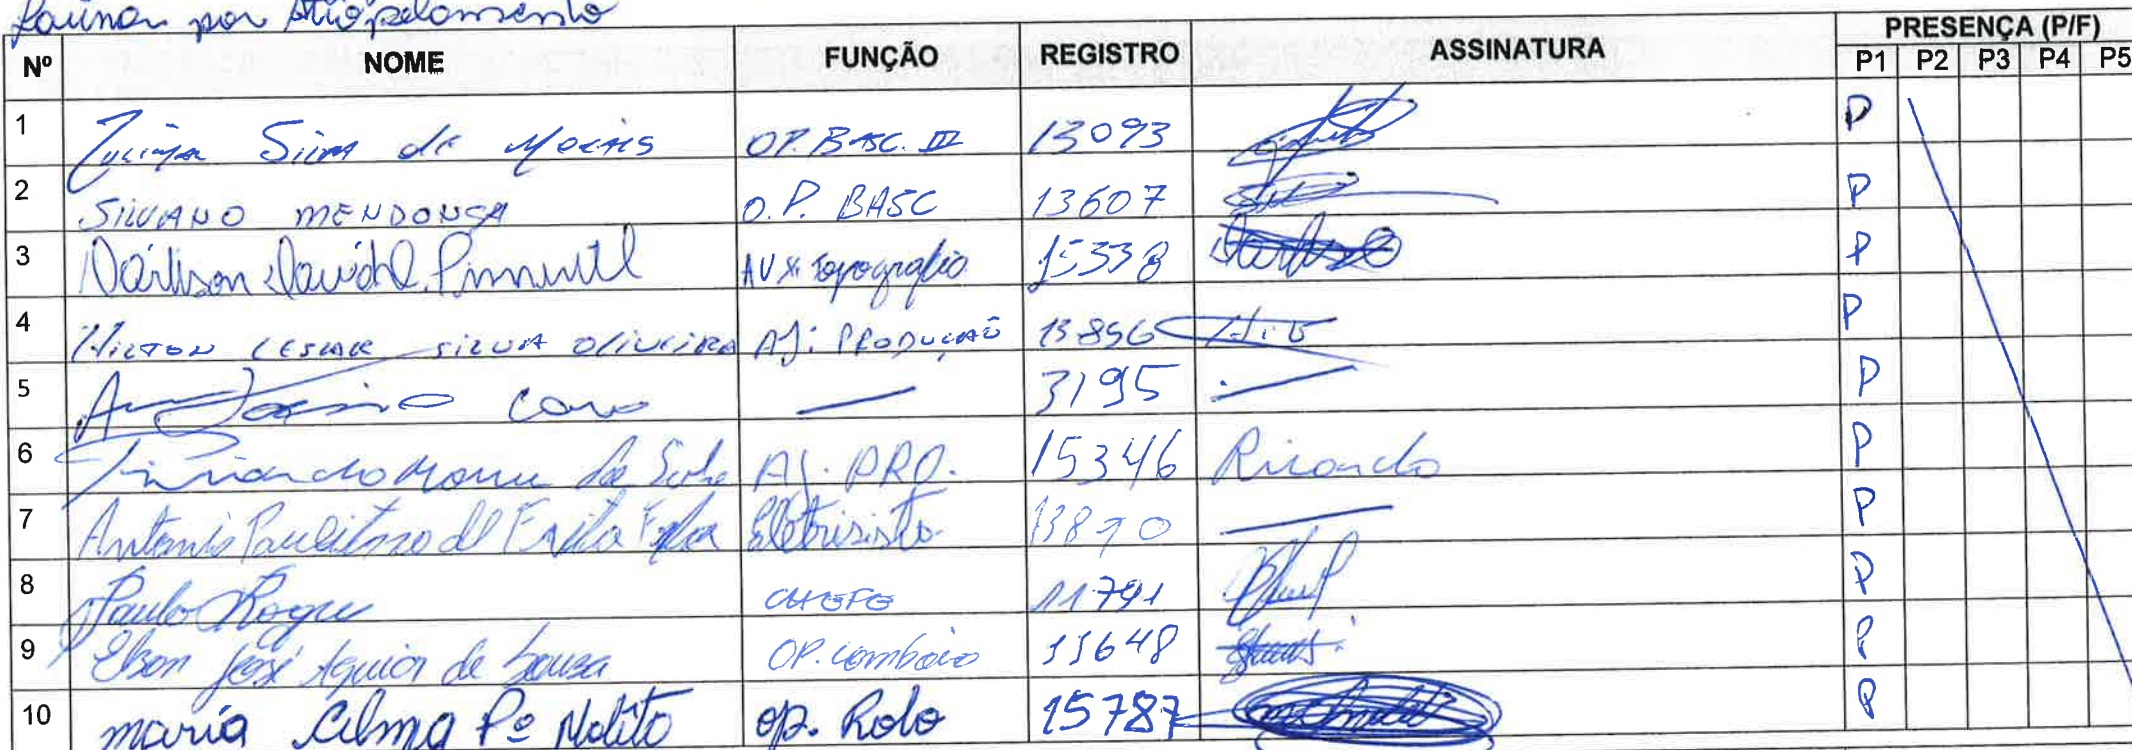 por Atropelamento
Nº NOME FUNÇÃO REGISTRO ASSINATURA PRESENÇA (P/F)
P1 P2 P3 P4 P5
1 Silva de Morais OP. BASC. III 13093 P
2 SILVANO MENDONÇA O.P. BASC 13607 P
3 Darlison David Pimentel AUX. Topografia 15338 P
4 HILTON CESAR SILVA OLIVEIRA AJ: PRODUÇAÕ 13856 P
5 — 3195 P
6 da Silva AJ. PRO. 15346 Ricardo P
7 Antonio de Eletrisista 13870 — P
8 Paulo Roque CHEFE 11791 P
9 Elson José Aguiar de Souza OP. comboio 11648 P
10 maria Cilma Pº Nolito op. Rolo 15787 P